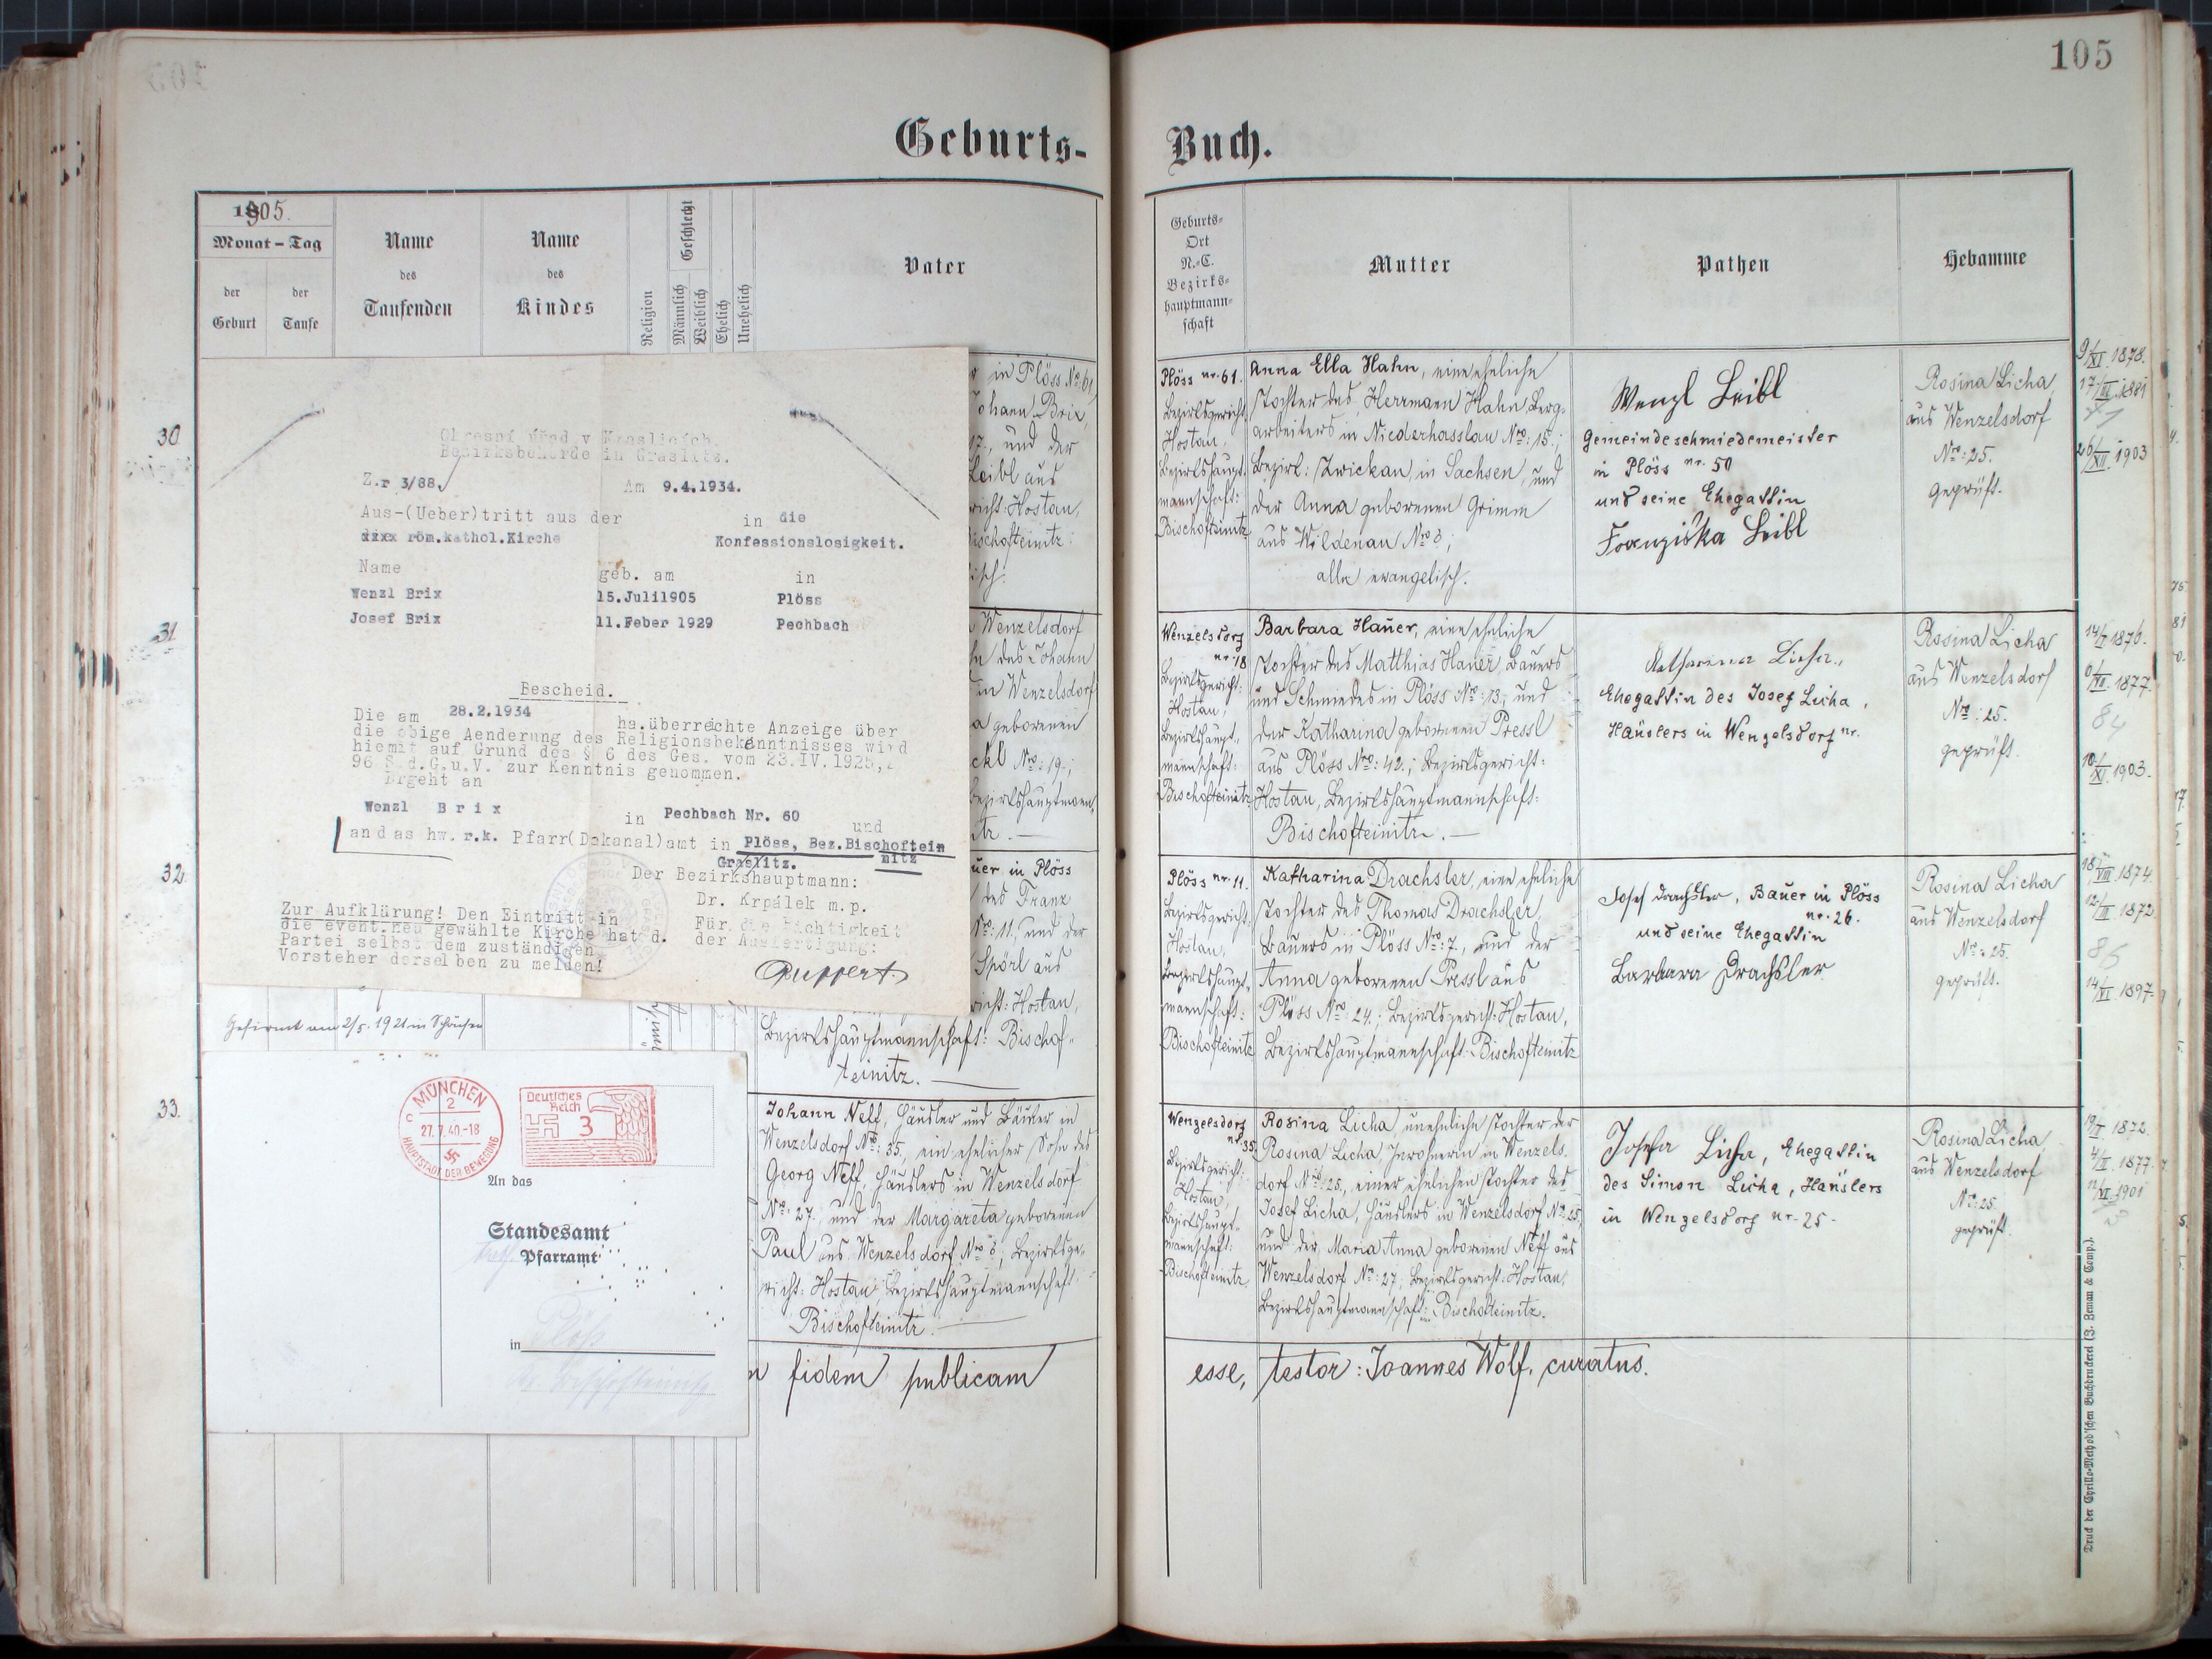 105
Geburts-
Buch.
1905.
Monat - Tag
der Geburt
der Taufe
Name
des
Taufenden
Name
des
Kindes
Religion
Geschlecht
Männlich
Weiblich
Ehelich
Unehelich
Vater
Geburts-
Ort
N.-C.
Bezirks-
hauptmann-
schaft
Mutter
Pathen
Hebamme
30
in Plöss No 61,
Johann Brix,
17., und der
Leibl aus
richt: Hostau,
Bischofteinitz:
isch:
Okresní úřad v Kraslicích.
Bezirksbehörde in Graslitz.
Z.r 3/88.
Am 9.4.1934.
Aus-(Ueber)tritt aus der
in die
xxxx röm.kathol.Kirche
Konfessionslosigkeit.
Name
geb. am
in
Wenzl Brix
15.Juli1905
Plöss
Josef Brix
11.Feber 1929
Pechbach
Bescheid.
Die am 28.2.1934 ha.überreichte Anzeige über
die obige Aenderung des Religionsbekenntnisses wird
hiemit auf Grund des § 6 des Ges. vom 23.IV.1925,
96 S.d.G.u.V. zur Kenntnis genommen.
Ergeht an
Wenzl Brix
in Pechbach Nr. 60
und
and as hw. r.k. Pfarr(Dekanal)amt in Plöss, Bez.Bischoftein
nitz
Graslitz.
Der Bezirkshauptmann:
Dr. Krpálek m.p.
Für die Richtigkeit
der Ausfertigung:
Ruppert
Zur Aufklärung! Den Eintritt in
die event.neu gewählte Kirche hat d.
Partei selbst dem zuständigen
Vorsteher derselben zu melden!
Plöss nr. 61.
Bezirksgericht:
Hostau,
Bezirkshaupt-
mannschaft:
Bischofteinitz
Anna Ella Hahn, eine eheliche
Tochter des Herrmann Hahn, Berg-
arbeiters in Niederhasslau Nro: 15.;
Bezirk: Zwickau, in Sachsen, und
der Anna geborenen Grimm
aus Wildenau No 8;
alle evangelisch.
Wenzl Leibl
Gemeindeschmiedemeister
in Plöss nr. 50
und seine Ehegattin
Franziska Leibl
Rosina Licha
aus Wenzelsdorf
Nro: 25.
geprüft.
9/XI. 1878.
17/III. 1881
26/XII. 1903
31
Wenzelsdorf
des Johann
in Wenzelsdorf
a geborenen
ckl Nro: 19.;
Bezirkshauptmann-
itz.
Wenzelsdorf
nr. 18
Bezirksgericht:
Hostau,
Bezirkshaupt-
mannschaft:
Bischofteinitz
Barbara Hauer, eine eheliche
Tochter des Matthias Hauer, Bauers
und Schmiedes in Plöss Nro: 13., und
der Katharina geborenen Pressl
aus Plöss Nro: 42.; Bezirksgericht:
Hostau, Bezirkshauptmannschaft:
Bischofteinitz.
Katharina Licha,
Ehegattin des Josef Licha,
Häuslers in Wenzelsdorf nr.
Rosina Licha
aus Wenzelsdorf
Nro: 25.
geprüft.
1876.
1877.
84
10/XI. 1903.
32
uer in Plöss
des Franz
Nro: 11., und der
Spörl aus
richt: Hostau,
Bezirkshauptmannschaft: Bischof-
teinitz.
Gefirmt am 2/5. 1921 in
Plöss nr. 11.
Bezirksgericht:
Hostau,
Bezirkshaupt-
mannschaft:
Bischofteinitz
Katharina Drachsler, eine eheliche
Tochter des Thomas Drachsler,
Bauers in Plöss Nro: 7., und der
Anna geborenen Pressl aus
Plöss Nro: 24.; Bezirksgericht: Hostau,
Bezirkshauptmannschaft: Bischofteinitz
Josef Drachsler, Bauer in Plöss
nr. 26.
und seine Ehegattin
Barbara Drachsler
Rosina Licha
aus Wenzelsdorf
Nro: 25.
geprüft.
18/VIII 1874.
12/III 1872.
86
14/VI 1897.
33.
MÜNCHEN
2
c
27.7.40.-18
HAUPTSTADT DER BEWEGUNG
Deutsches
Reich
3
An das
Standesamt
Pfarramt
in Plöß
Johann Neff, Häusler und Bäcker in
Wenzelsdorf Nro: 35., ein ehelicher Sohn des
Georg Neff, Häuslers in Wenzelsdorf
Nro: 27., und der Margareta geborenen
Paul aus Wenzelsdorf Nro 8; Bezirksge-
richt: Hostau, Bezirkshauptmannschaft
Bischofteinitz.
Wenzelsdorf
nr. 35.
Bezirksgericht:
Hostau,
Bezirkshaupt-
mannschaft:
Bischofteinitz
Rosina Licha, uneheliche Tochter der
Rosina Licha, Inwohnerin in Wenzels-
dorf Nro: 25., einer ehelichen Tochter des
Josef Licha, Häuslers in Wenzelsdorf No 25,
und der Maria Anna geborenen Neff aus
Wenzelsdorf No: 27.; Bezirksgericht: Hostau,
Bezirkshauptmannschaft: Bischofteinitz.
Josefa Licha, Ehegattin
des Simon Licha, Häuslers
in Wenzelsdorf nr. 25.
Rosina Licha
aus Wenzelsdorf
Nro: 25.
geprüft
1872.
4/II. 1877.
1901
fidem publicam
esse, testor: Joannes Wolf, curatus.
Druck der Cyrillo-Method'schen Buchdruckerei (J. Zeman & Comp.).